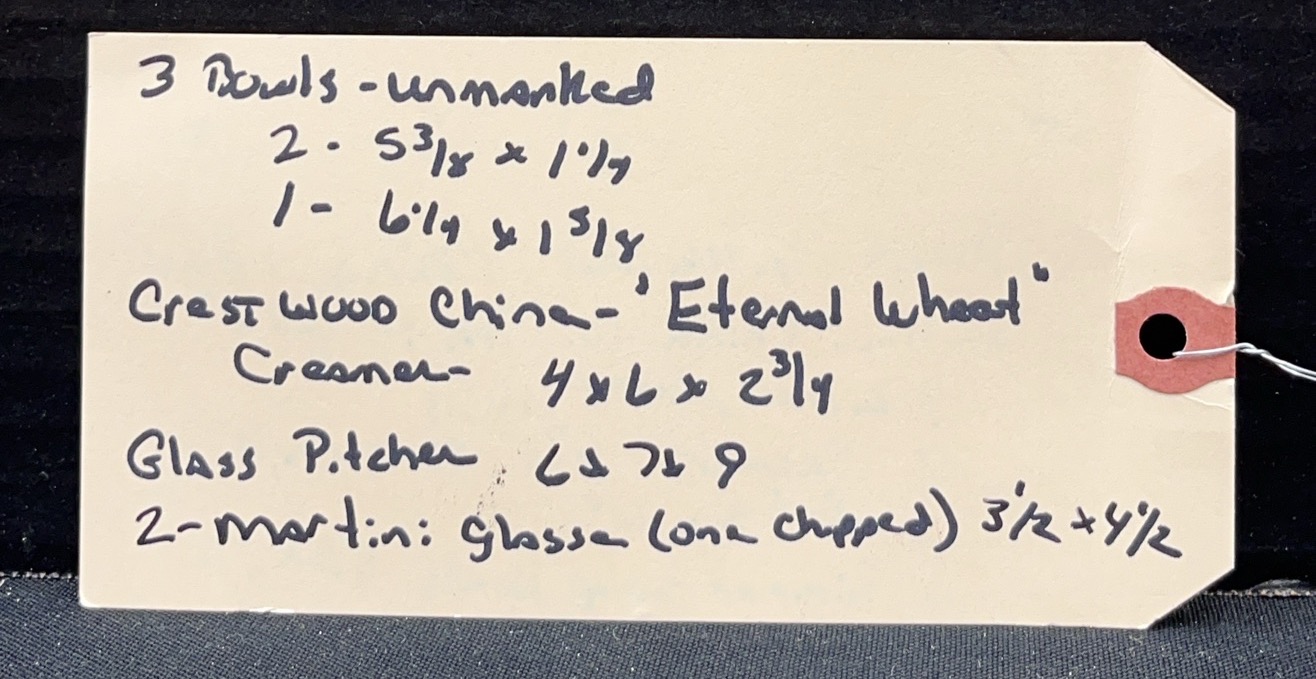 3 Bowls - unmarked
2 - 5 3/8 x 1 1/4
1 - 6 1/4 x 1 5/8
Crestwood China - "Eternal Wheat"
Creamer - 4 x 6 x 2 3/4
Glass Pitcher 6 x 7 x 9
2 - martini glasses (one chipped) 3 1/2 x 4 1/2